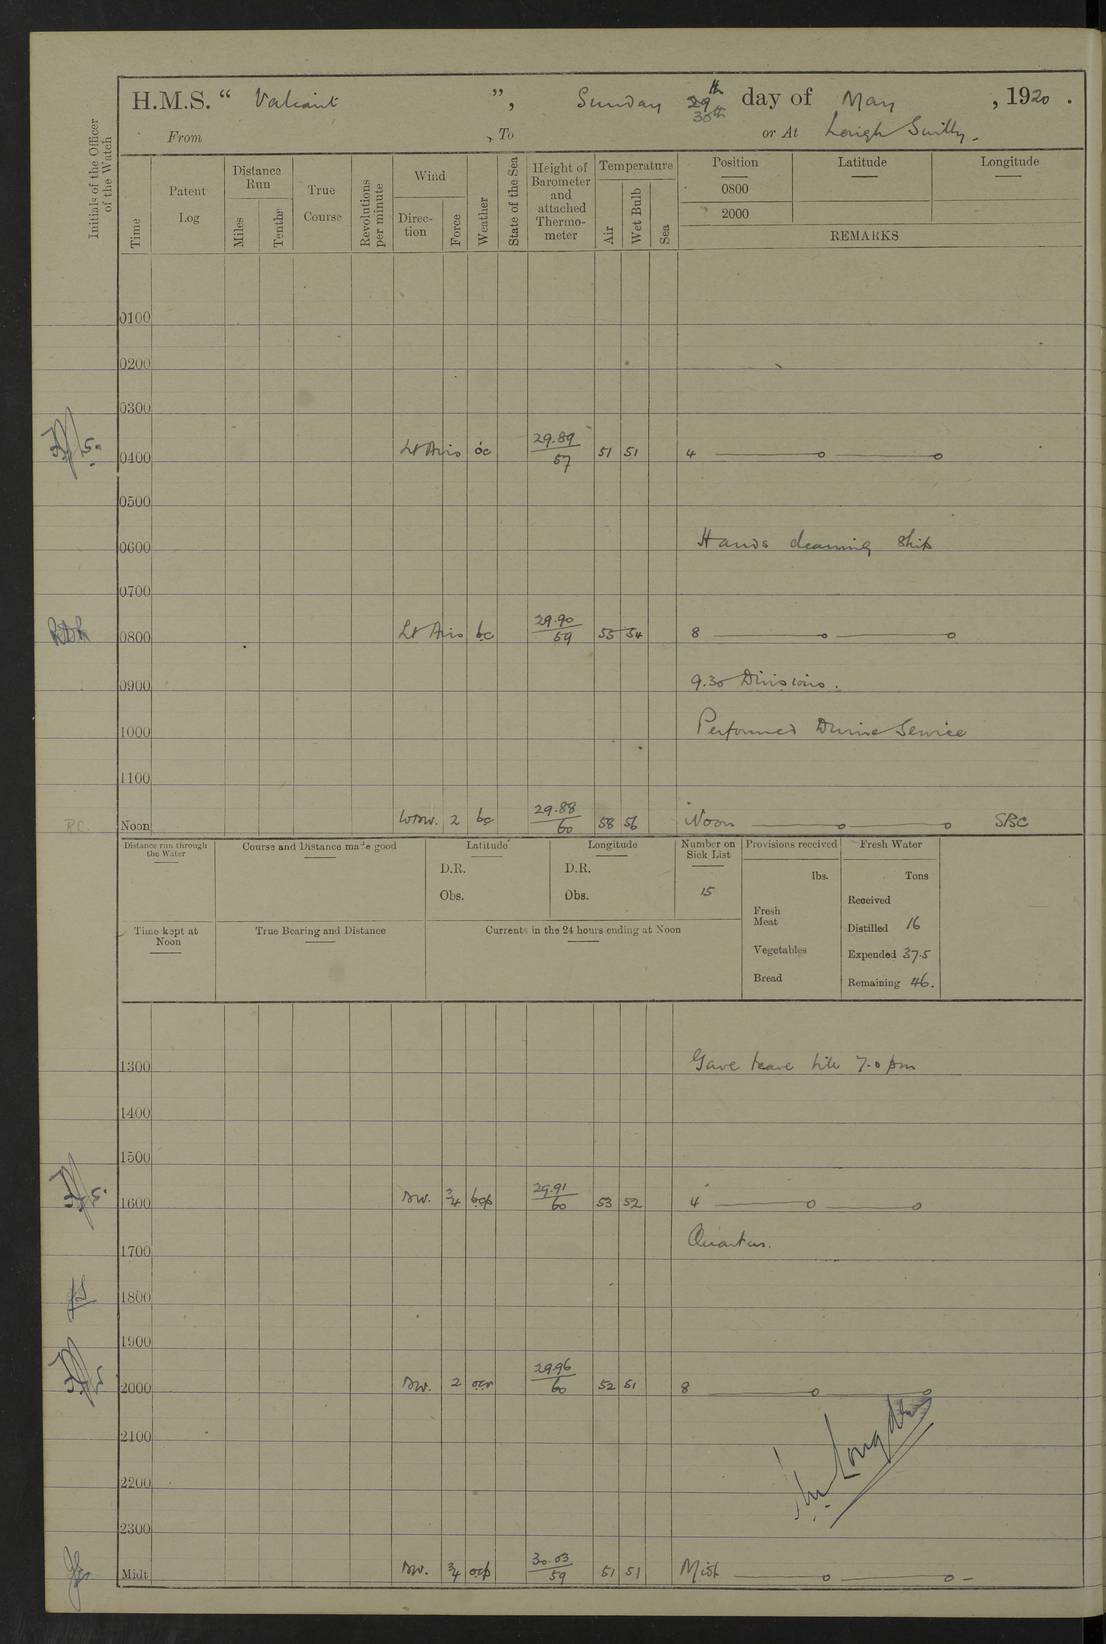 H.M.S. “ Valiant ”, Sunday 30th day of May , 1920 .
From , To or At Lough Swilly.
Initials of the Officer of the Watch
Time Patent Log Distance Run Miles Tenths True Course Revolutions per minute Wind Direction Force Weather State of the Sea Height of Barometer and attached Thermometer Temperature Air Wet Bulb Sea Position Latitude Longitude
0800
2000
REMARKS
0100
0200
0300
0400 Lt Airs oc 29.89 57 51 51 4
0500
0600 Hands cleaning Ship
0700
0800 Lt Airs bc 29.90 59 55 54 8
0900 9.30 Divisions.
1000 Performed Divine Service
1100
Noon WNW. 2 bc 29.88 60 58 56 Noon SBC
Distance run through the Water Course and Distance made good Latitude Longitude Number on Sick List Provisions received Fresh Water
D.R. D.R. lbs. Tons
Obs. Obs. 15 Received
Fresh Meat Distilled 16
Time kept at Noon True Bearing and Distance Currents in the 24 hours ending at Noon
Vegetables Expended 37.5
Bread Remaining 46.
1300 Gave leave till 7.0 pm
1400
1500
1600 NW. 3/4 bcp 29.91 60 53 52 4
1700 Quarters.
1800
1900
2000 NW. 2 29.96 60 52 51 8
2100
2200
2300
Midt NW. 3/4 ocp 30.03 59 51 51 Midt